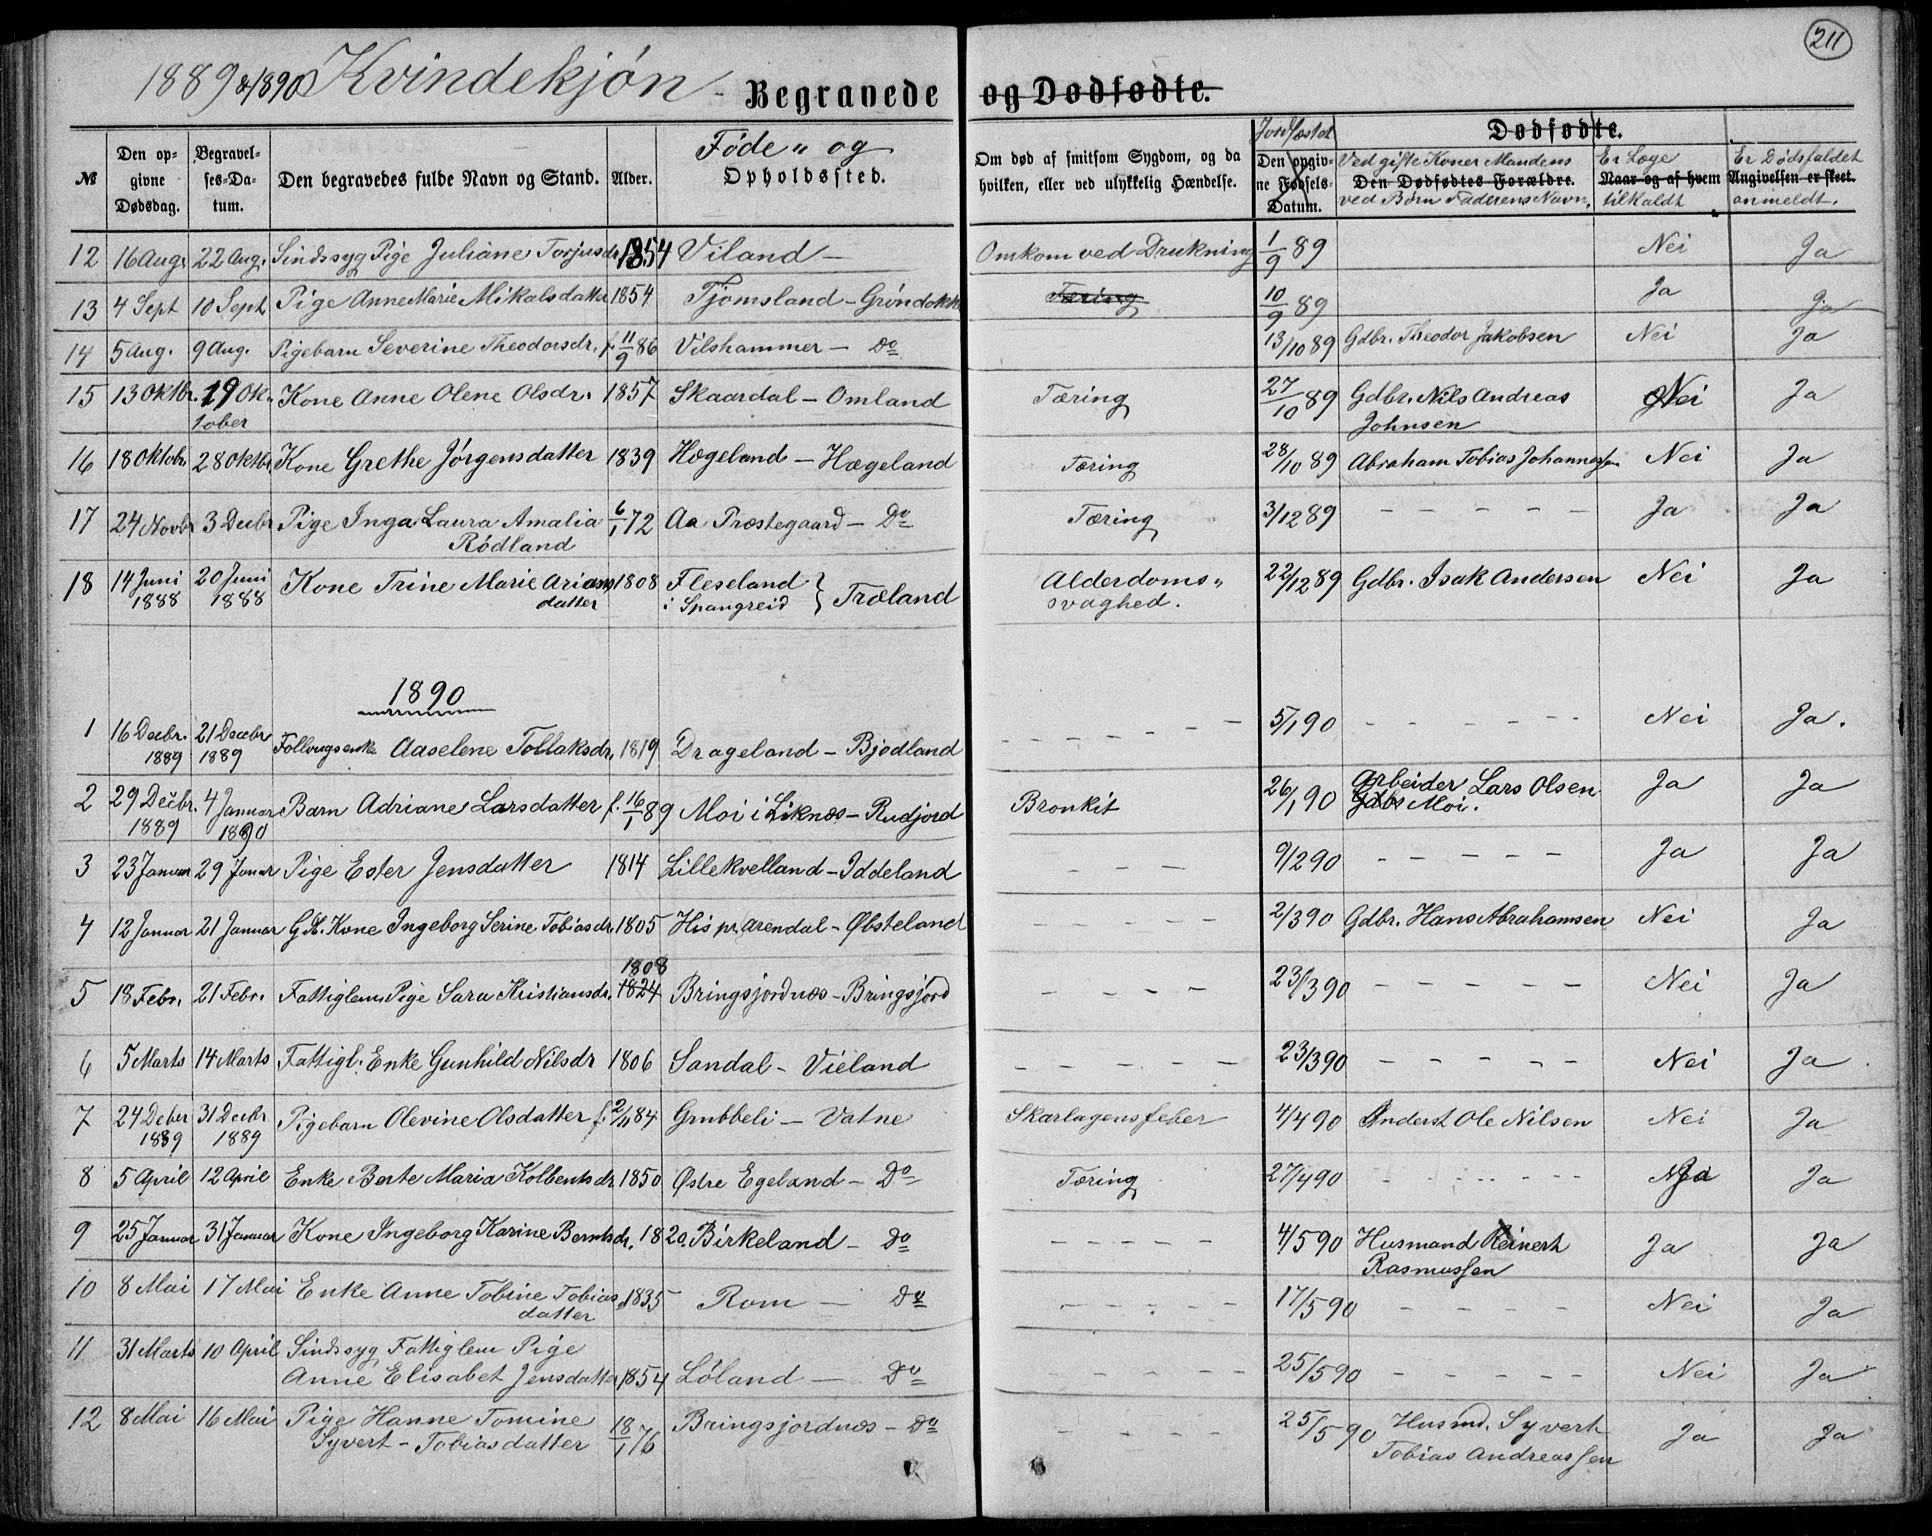 211
1889 & 1890 Kvindekjøn - Begravede og Dødfødte.
№
Den opgivne Dødsdag.
Begravelses-Datum.
Den begravedes fulde Navn og Stand.
Alder.
Føde " og Opholdssted.
Om død af smitsom Sygdom, og da hvilken, eller ved ulykkelig Hændelse.
Jordfæstet
Den opgivne Fødsels-Datum.
Dødfødte.
Ved gifte Koner Mandens
Den Dødfødtes Forældre.
ved Børn Faderens Navn.
Er Læge
Naar og af hvem
tilkaldt
Er Dødsfaldet
Angivelsen er skeet.
anmeldt.
12 16 Aug. 22 Aug. Sindssyg Pige Juliane Torjusdr. 1854 Viland — Omkom ved Drukning 1/9 89 Nei Ja
13 4 Sept 10 Sept. Pige Anne Marie Mikalsdatter 1854 Tjomsland - Grøndokk Tæring 10/9 89 Ja Ja
14 5 Aug. 9 Aug. Pigebarn Severine Theodorsdr. f. 11/9 86 Vilshammer — Do 13/10 89 Gdbr. Theodor Jakobsen Nei Ja
15 13 Oktbr. 19 Ok- Kone Anne Olene Olsdr. 1857 Skaardal - Omland Tæring 27/10 89 Gdbr. Nils Andreas Nei Ja
tober Johnsen
16 18 Oktobr. 28 Oktbr. Kone Grethe Jørgensdatter 1839 Hægeland — Hægeland Tæring 28/10 89 Abraham Tobias Johannessen Nei Ja
17 24 Novbr 3 Decbr Pige Inga Laura Amalia 6/1 72 Aa Præstegaard - Do Tæring 3/12 89 - - - - - Ja Ja
Rødland
18 14 Juni 20 Juni Kone Trine Marie Arians 1808 Fleseland } Træland Alderdoms" 22/12 89 Gdbr. Isak Andersen Nei Ja
1888 1888 datter i Spangreid svaghed.
1890
1 16 Decbr. 21 Decebr Follougsenke Aaselene Tollaksdr. 1819 Drageland - Bjodland - - - - - 5/1 90 - - - - - - Nei Ja.
1889 1889
2 29 Decbr. 4 Januar Barn Adriane Larsdatter f. 16/1 89 Moi i Liknæs - Rudjord Bronkit 26/1 90 Arbeider Lars Olsen Ja Ja
1889 1890 Gdbr Moi.
3 23 Januar 29 Januar Pige Ester Jensdatter 1814 Lillekvelland - Iddeland - - - 9/2 90 - - - - - Ja Ja
4 12 Januar 21 Januar G.K. Kone Ingeborg Serine Tobiasdr. 1805 His pr. Arendal - Øbsteland - - - - 2/3 90 Gdbr. Hans Abrahamsen Nei Ja
1808
5 18 Febr. 21 Febr. Fattiglem Pige Sara Kristiansdr. 1824 Bringsjordnæs - Bringsjord - - - - 23/3 90 - - - - - Nei Ja
6 5 Marts 14 Marts Fattigl. Enke Gunhild Nilsdr 1806 Sandal - Vieland - - - - - 23/3 90 - - - - - Nei Ja
7 24 Deber 31 Decbr Pigebarn Olevine Olsdatter f. 2/11 84 Grubbeli - Vatne Skarlagensfeber 4/4 90 Inderst Ole Nilsen Nei Ja
1889 1889
8 5 April 12 April Enke Berte Maria Kolbentsdr. 1850 Østre Egeland - Do Tæring 27/4 90 - - - - - - Ja Ja
9 25 Januar 31 Januar Kone Ingeborg Karine Berntsdr. 1820. Birkeland - Do - - - - - 4/5 90 Husmand Reinert Ja Ja
Rasmussen
10 8 Mai 17 Mai Enke Anne Tobine Tobias 1835 Rom — Do - - - - - 17/5 90 - - - - - Nei Ja
datter
11 31 Marts 10 April Sindssyg Fattiglem Pige
Anne Elisabet Jensdatter 1854 Løland — Do - - - - - 25/5 90 - - - - - Nei Ja
12 8 Mai 16 Mai Pige Hanne Tomine 18/1 76 Bringsjordnæs - Do - - - - 25/5 90 Husmd. Syvert Ja Ja
Syvert - Tobiasdatter Tobias Andreassen